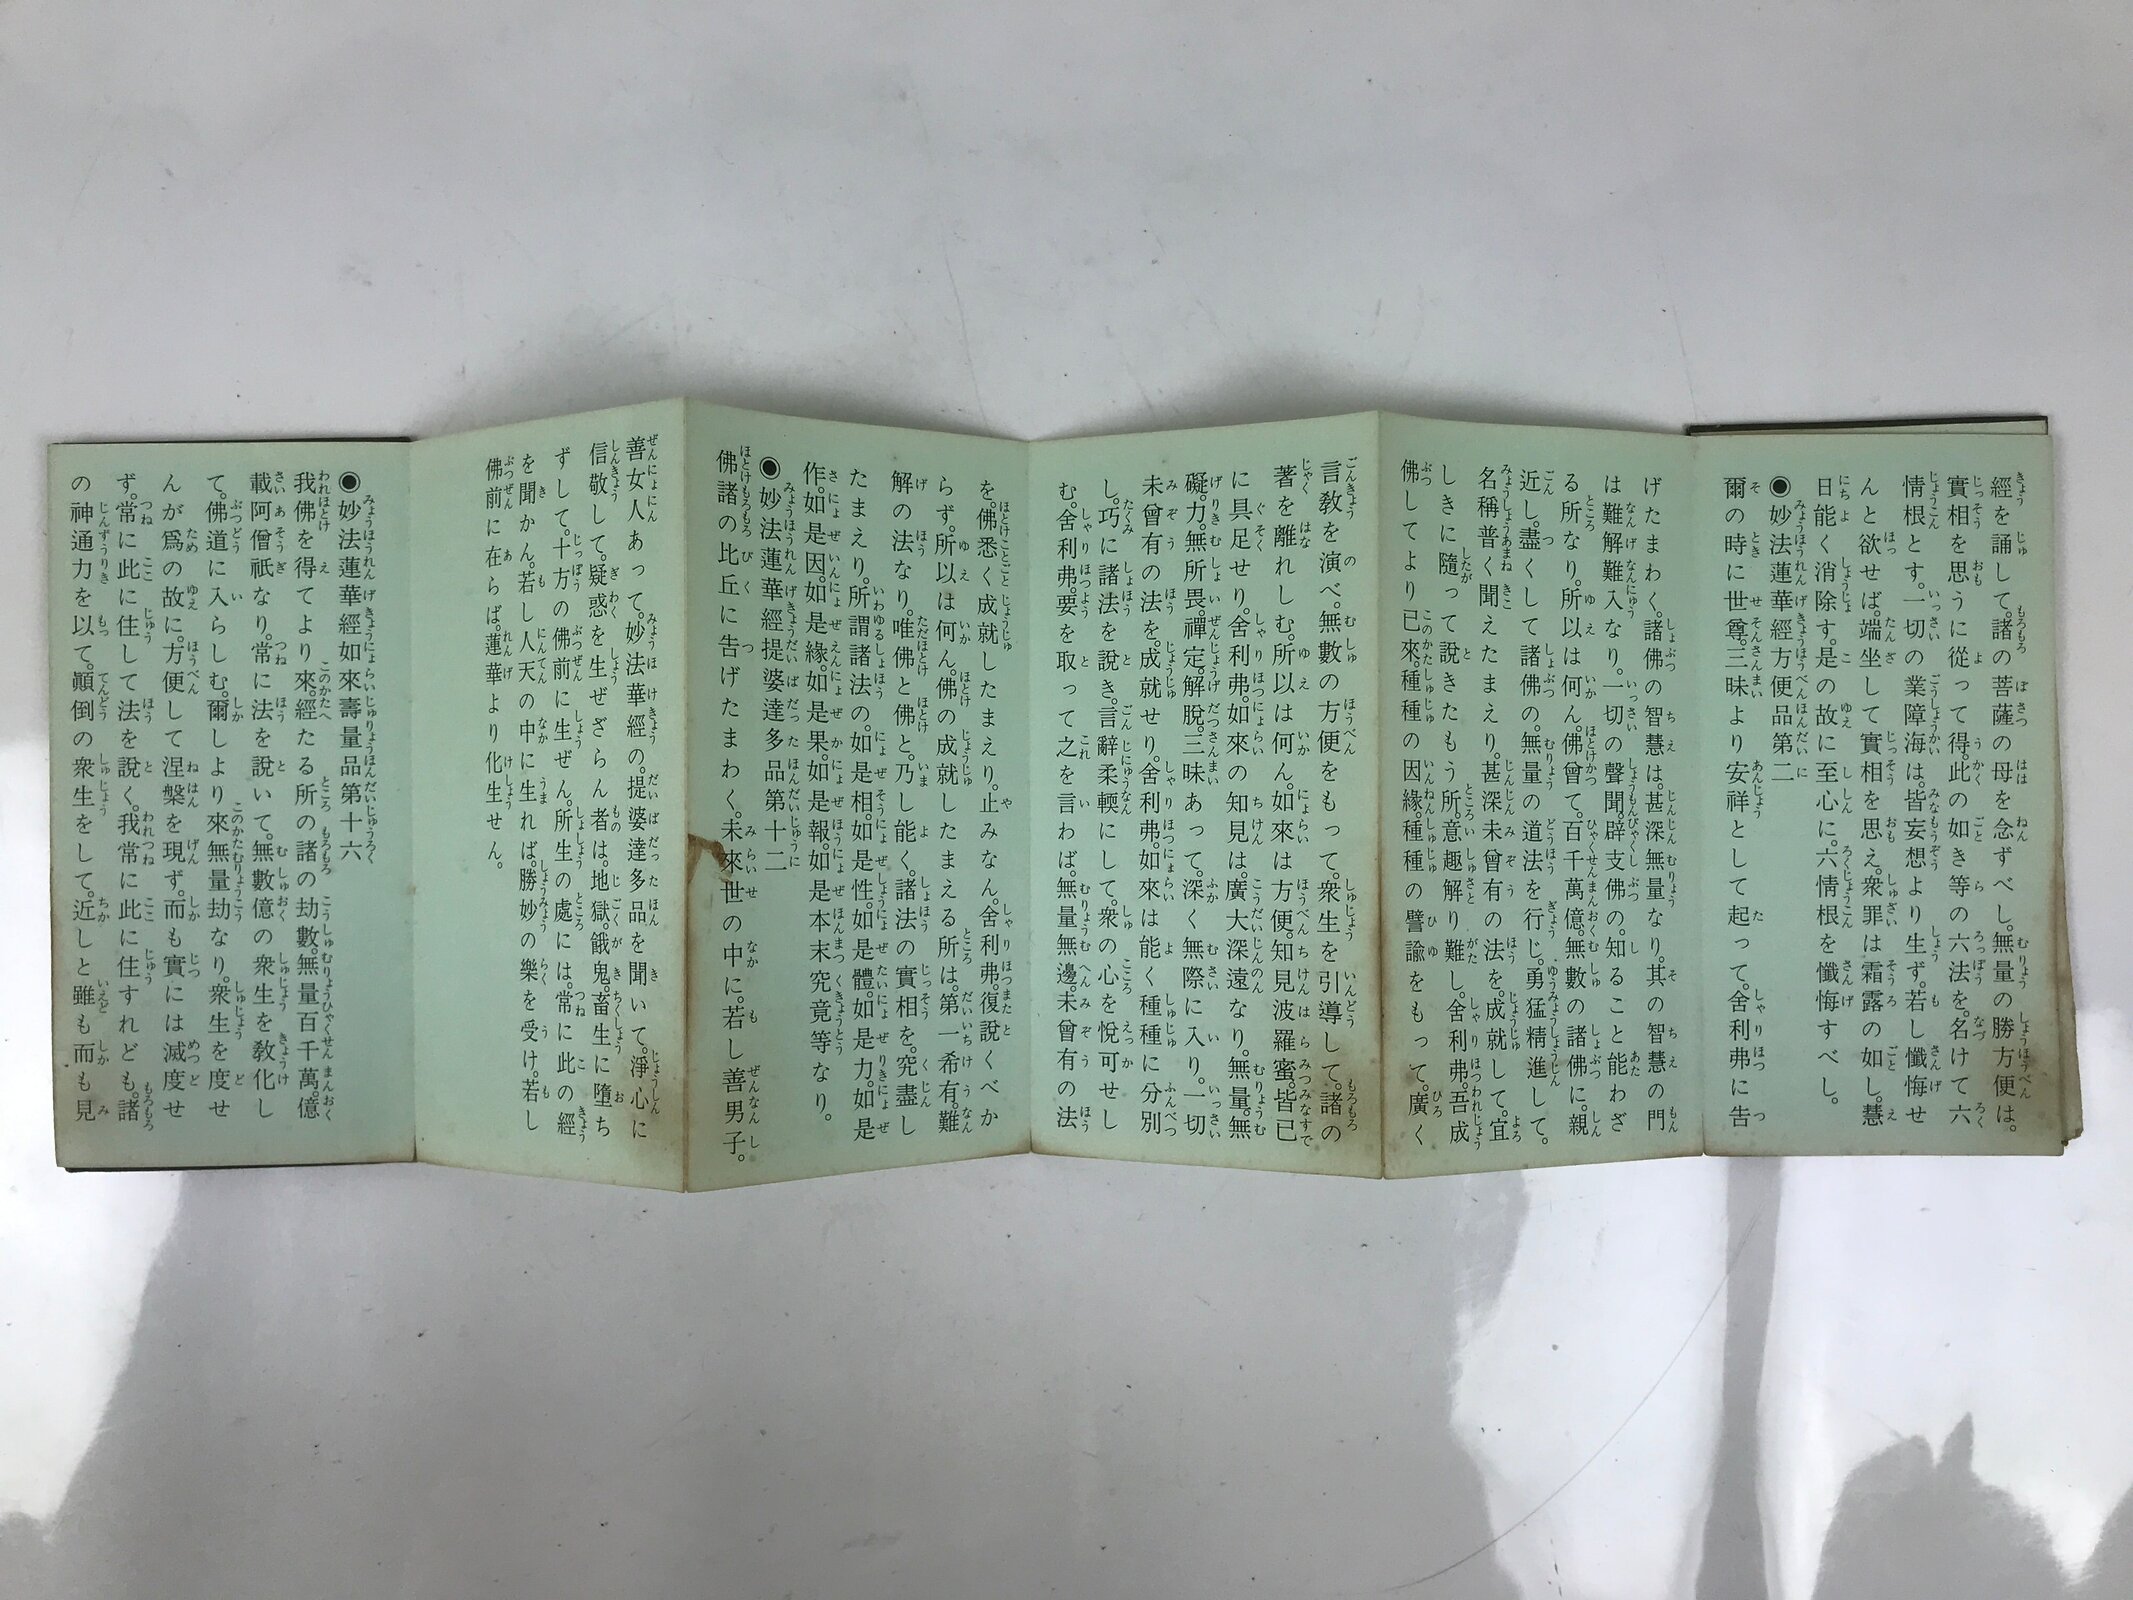 經を誦して。諸の菩薩の母を念ずべし。無量の勝方便は。
實相を思うに從って得。此の如き等の六法を。名けて六
情根とす。一切の業障海は。皆妄想より生ず。若し懺悔せ
んと欲せば。端坐して實相を思え。衆罪は霜露の如し。慧
日能く消除す。是の故に至心に。六情根を懺悔すべし。
◉妙法蓮華經方便品第二
爾の時に世尊。三昧より安祥として起って。舍利弗に告
げたまわく。諸佛の智慧は。甚深無量なり。其の智慧の門
は難解難入なり。一切の聲聞。辟支佛の。知ること能わざ
る所なり。所以は何ん。佛曾て。百千萬億。無數の諸佛に。親
近し。盡くして諸佛の。無量の道法を行じ。勇猛精進して。
名稱普く聞えたまえり。甚深未曾有の法を。成就して。宜
しきに隨って說きたもう所。意趣解り難し。舍利弗。吾成
佛してより已來。種種の因緣。種種の譬諭をもって。廣く
言敎を演べ。無數の方便をもって。衆生を引導して。諸の
著を離れしむ。所以は何ん。如來は方便。知見波羅蜜。皆已
に具足せり。舍利弗。如來の知見は。廣大深遠なり。無量。無
礙。力。無所畏。禪定。解脫。三昧あって。深く無際に入り。一切
未曾有の法を。成就せり。舍利弗。如來は能く種種に分別
し。巧に諸法を說き。言辭柔輭にして。衆の心を悅可せし
む。舍利弗。要を取って之を言わば。無量無邊。未曾有の法
を。佛悉く成就したまえり。止みなん。舍利弗。復說くべか
らず。所以は何ん。佛の成就したまえる所は。第一希有。難
解の法なり。唯佛と佛と。乃し能く。諸法の實相を。究盡し
たまえり。所謂諸法の。如是相。如是性。如是體。如是力。如是
作。如是因。如是緣。如是果。如是報。如是本末究竟等なり。
◉妙法蓮華經提婆達多品第十二
佛諸の比丘に告げたまわく。未來世の中に。若し善男子。
善女人あって。妙法華經の。提婆達多品を聞いて。淨心に
信敬して。疑惑を生ぜざらん者は。地獄。餓鬼。畜生に墮ち
ずして。十方の佛前に生ぜん。所生の處には。常に此の經
を聞かん。若し人天の中に生れば。勝妙の樂を受け。若し
佛前に在らば。蓮華より化生せん。
◉妙法蓮華經如來壽量品第十六
我佛を得てより來。經たる所の諸の劫數。無量百千萬。億
載阿僧祇なり。常に法を說いて。無數億の衆生を敎化し
て。佛道に入らしむ。爾しより來無量劫なり。衆生を度せ
んが爲の故に。方便して涅槃を現ず。而も實には滅度せ
ず。常に此に住して法を說く。我常に此に住すれども。諸
の神通力を以て。顚倒の衆生をして。近しと雖も而も見